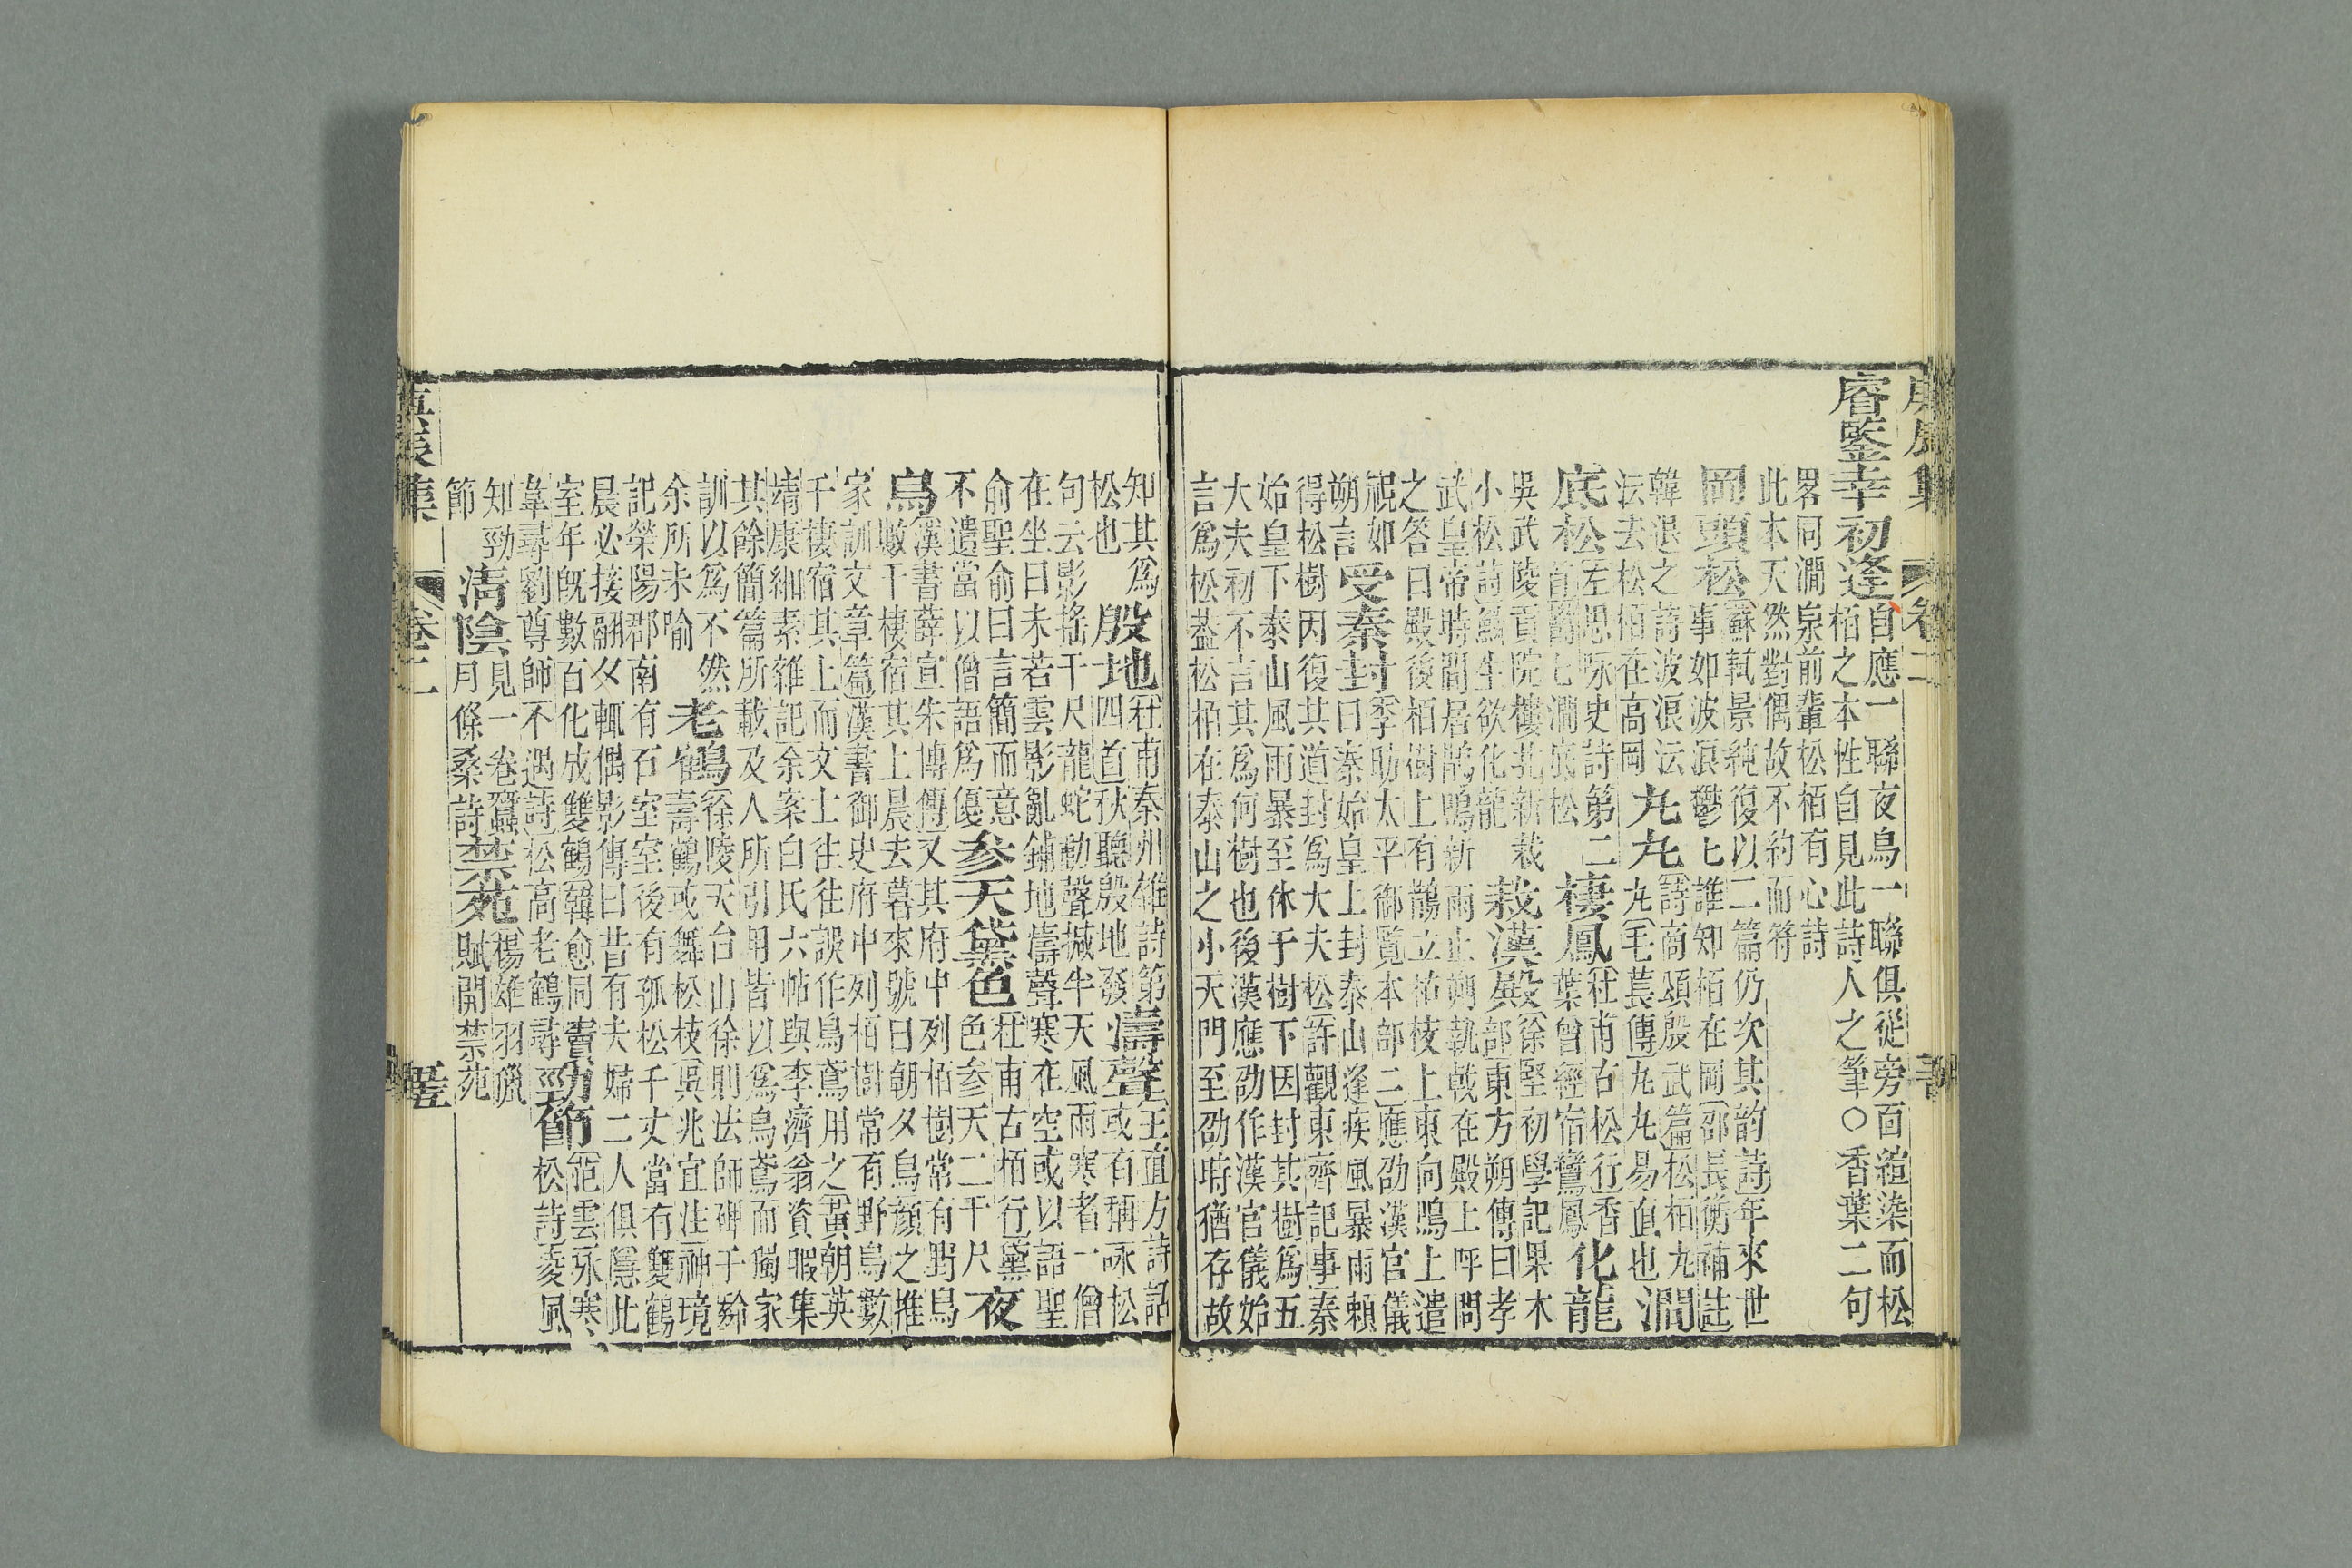 睿鑒幸初逢
自應一聯夜烏一聯俱從旁面渲染而松
栢之本性自見此詩人之筆○香葉二句
畧同澗泉前輩松栢有心詩
此本天然對偶故不約而符
岡頭松
蘇軾景純復以二篇仍次其韵詩年來世
事如波浪鬱七誰知栢在岡邵長蘅補註
韓退之詩波浪沄
沄去松栢在高岡
丸丸
詩商頌殷武篇松栢丸
丸毛萇傳丸丸易直也
澗
底松
左思咏史詩第二
首鬱七澗底松
棲鳳
杜甫古松行香
葉曾經宿鸞鳳
化龍
吳武陵貢院樓北新栽
小松詩鱗生欲化龍
栽漢殿
徐堅初學記果木
部東方朔傳曰孝
武皇帝時閒居鵲鳴新雨止朔執戟在殿上呼問
之答曰殿後栢樹上有鵲立枯枝上東向鳴上遣
視如
朔言
受秦封
季昉太平御覽本部二應劭漢官儀
曰秦始皇上封泰山逢疾風暴雨賴
得松樹因復其道封爲大夫松許觀東齊記事秦
始皇下泰山風雨暴至休于樹下因封其樹爲五
大夫初不言其爲何樹也後漢應劭作漢官儀始
言爲松葢松栢在泰山之小天門至劭時猶存故
知其爲
松也
殷地
杜甫秦州雜詩第
四首秋聽殷地發
濤聲
王直方詩話
或有稱咏松
句云影搖千尺龍蛇動聲撼半天風雨寒者一僧
在坐曰未若雲影亂鋪地濤聲寒在空或以語聖
俞聖俞曰言簡而意
不遺當以僧語爲優
參天黛色
杜甫古栢行黛
色參天二千尺
夜
烏
漢書薛宣朱博傳又其府中列栢樹常有野烏
數千棲宿其上晨去暮來號曰朝夕烏顏之推
家訓文章篇漢書御史府中列栢樹常有野烏數
千棲宿其上而文士往往誤作烏鳶用之黃朝英
靖康緗素雜記余案白氏六帖與李濟翁資暇集
其餘簡篇所載及人所引用皆以爲烏鳶而獨家
訓以爲不然
余所未喻
老鶴
徐陵天台山徐則法師碑千齡
壽鶴或舞松枝吳兆宜注神境
記滎陽郡南有石室室後有孤松千丈當有雙鶴
晨必接翮夕輒偶影傳曰昔有夫婦二人俱隱此
室年旣數百化成雙鶴韓愈同
韋尋劉尊師不遇詩松高老鶴尋
勁節
范雲咏寒
松詩凌風
知勁
節
清陰
見一卷蠶
月條桑詩
禁苑
楊雄羽獵
賦開禁苑
庚辰集
卷二